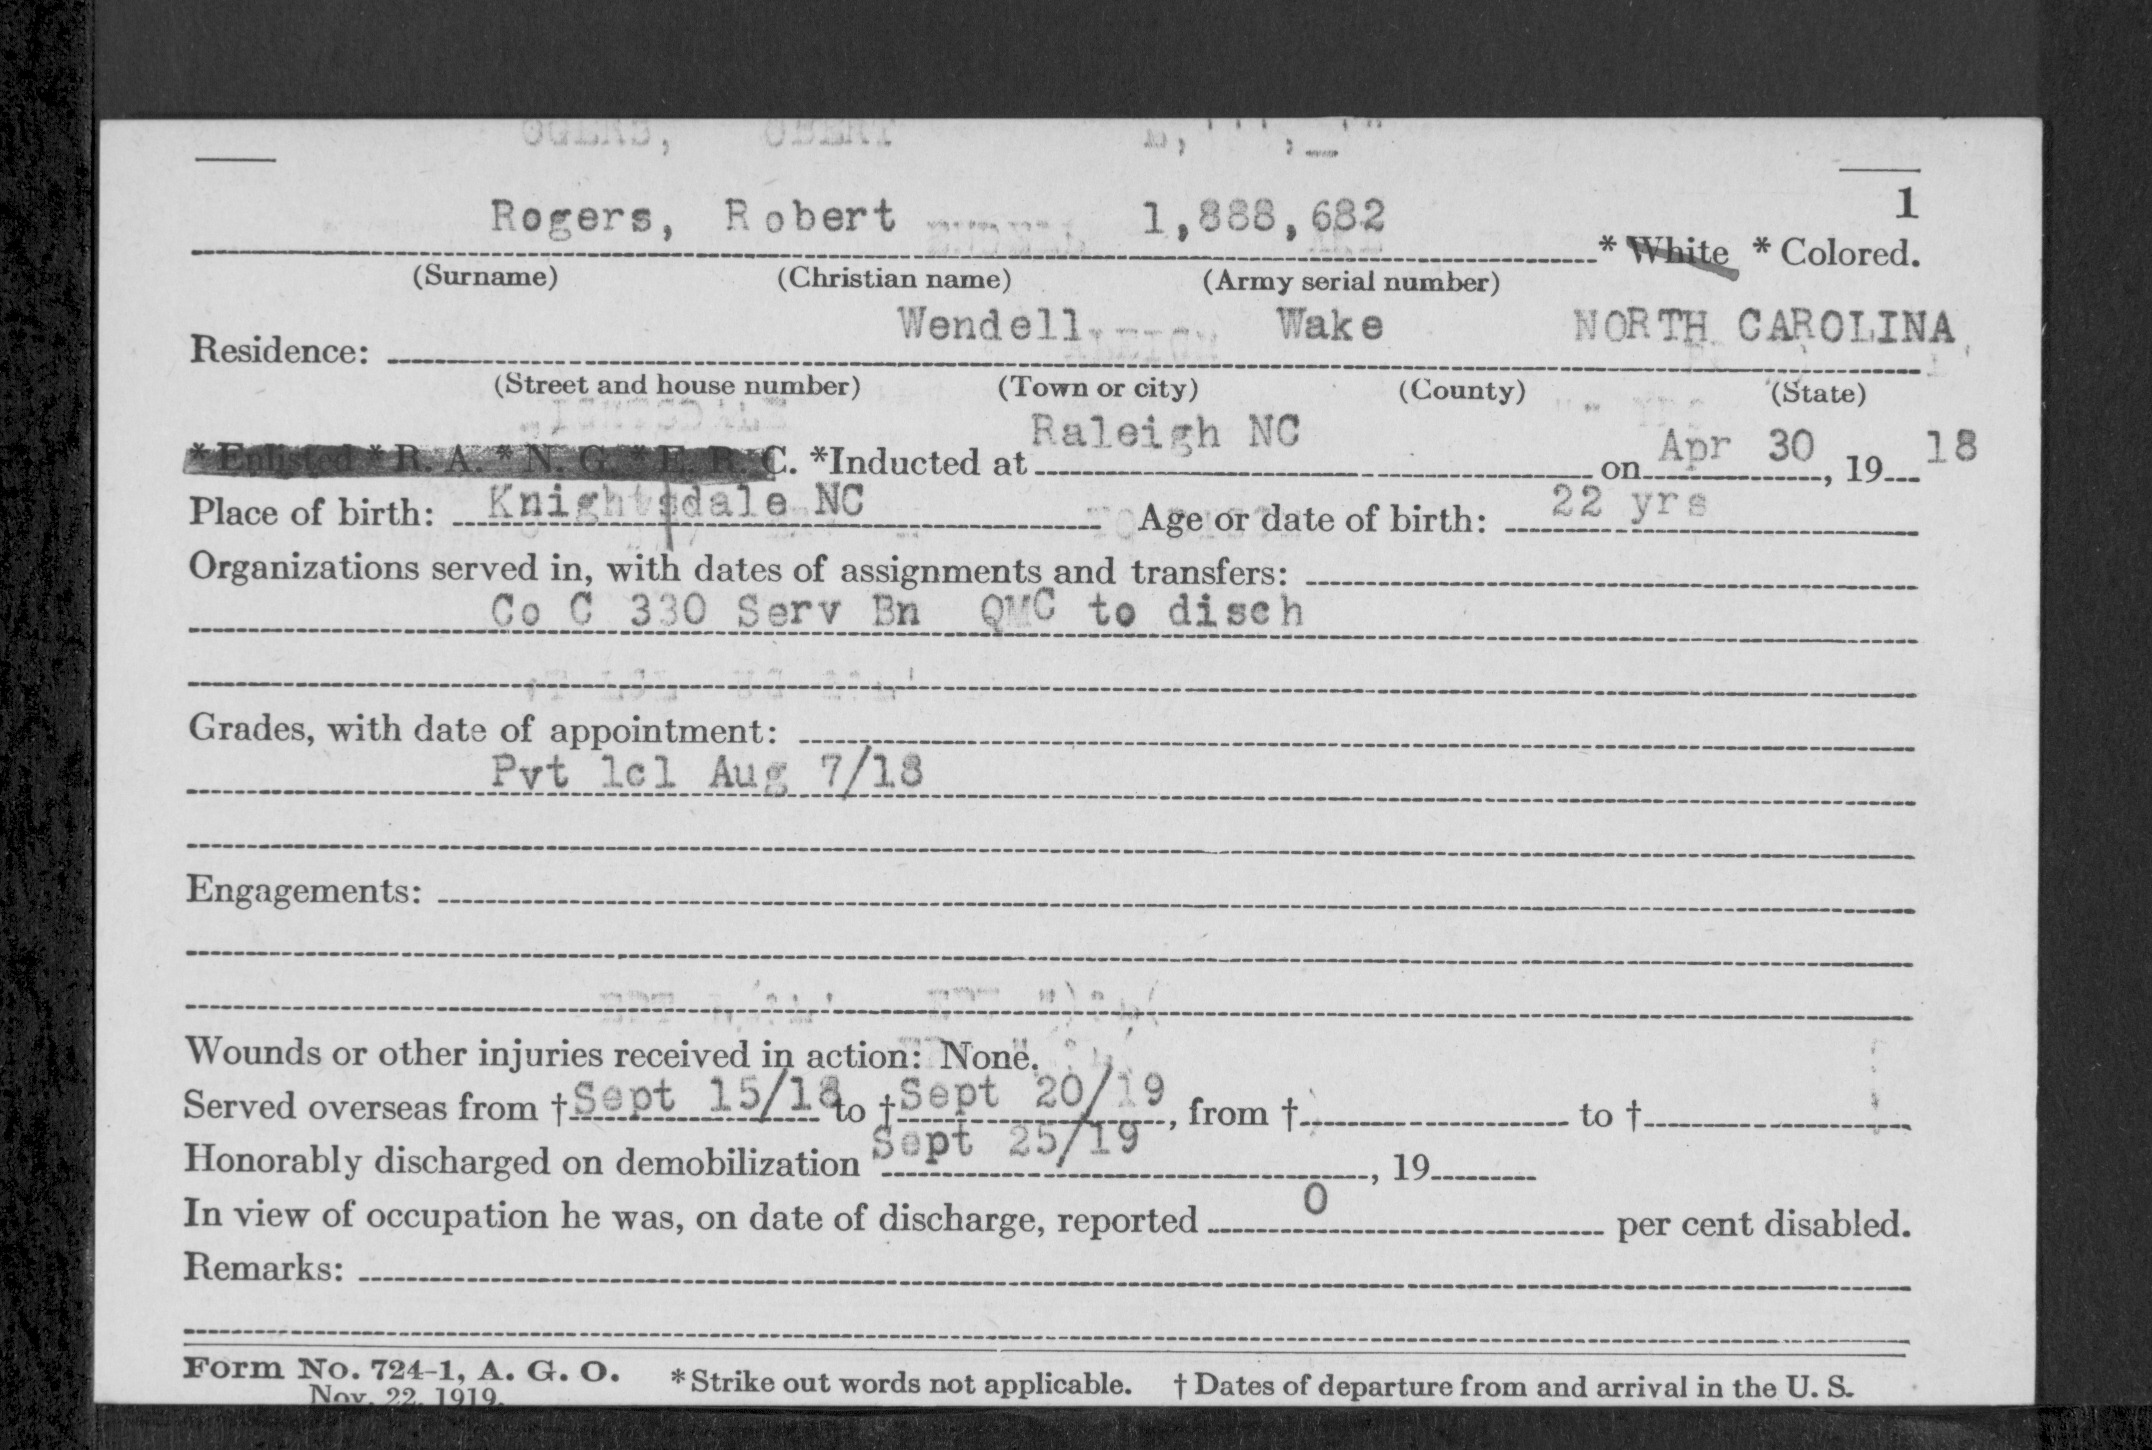 1
Rogers, Robert 1,888,682 * White * Colored.
(Surname) (Christian name) (Army serial number)
Residence: Wendell Wake NORTH CAROLINA
(Street and house number) (Town or city) (County) (State)
* Enlisted * R. A. * N. G. * E. R. C. *Inducted at Raleigh NC on Apr 30, 19 18
Place of birth: Knightsdale NC Age or date of birth: 22 yrs
Organizations served in, with dates of assignments and transfers:
Co C 330 Serv Bn QMC to disch
Grades, with date of appointment:
Pvt 1cl Aug 7/18
Engagements:
Wounds or other injuries received in action: None.
Served overseas from † Sept 15/18 to † Sept 20/19, from † to †
Honorably discharged on demobilization Sept 25/19, 19
In view of occupation he was, on date of discharge, reported 0 per cent disabled.
Remarks:
Form No. 724-1, A. G. O. *Strike out words not applicable. † Dates of departure from and arrival in the U. S.
Nov. 22, 1919.